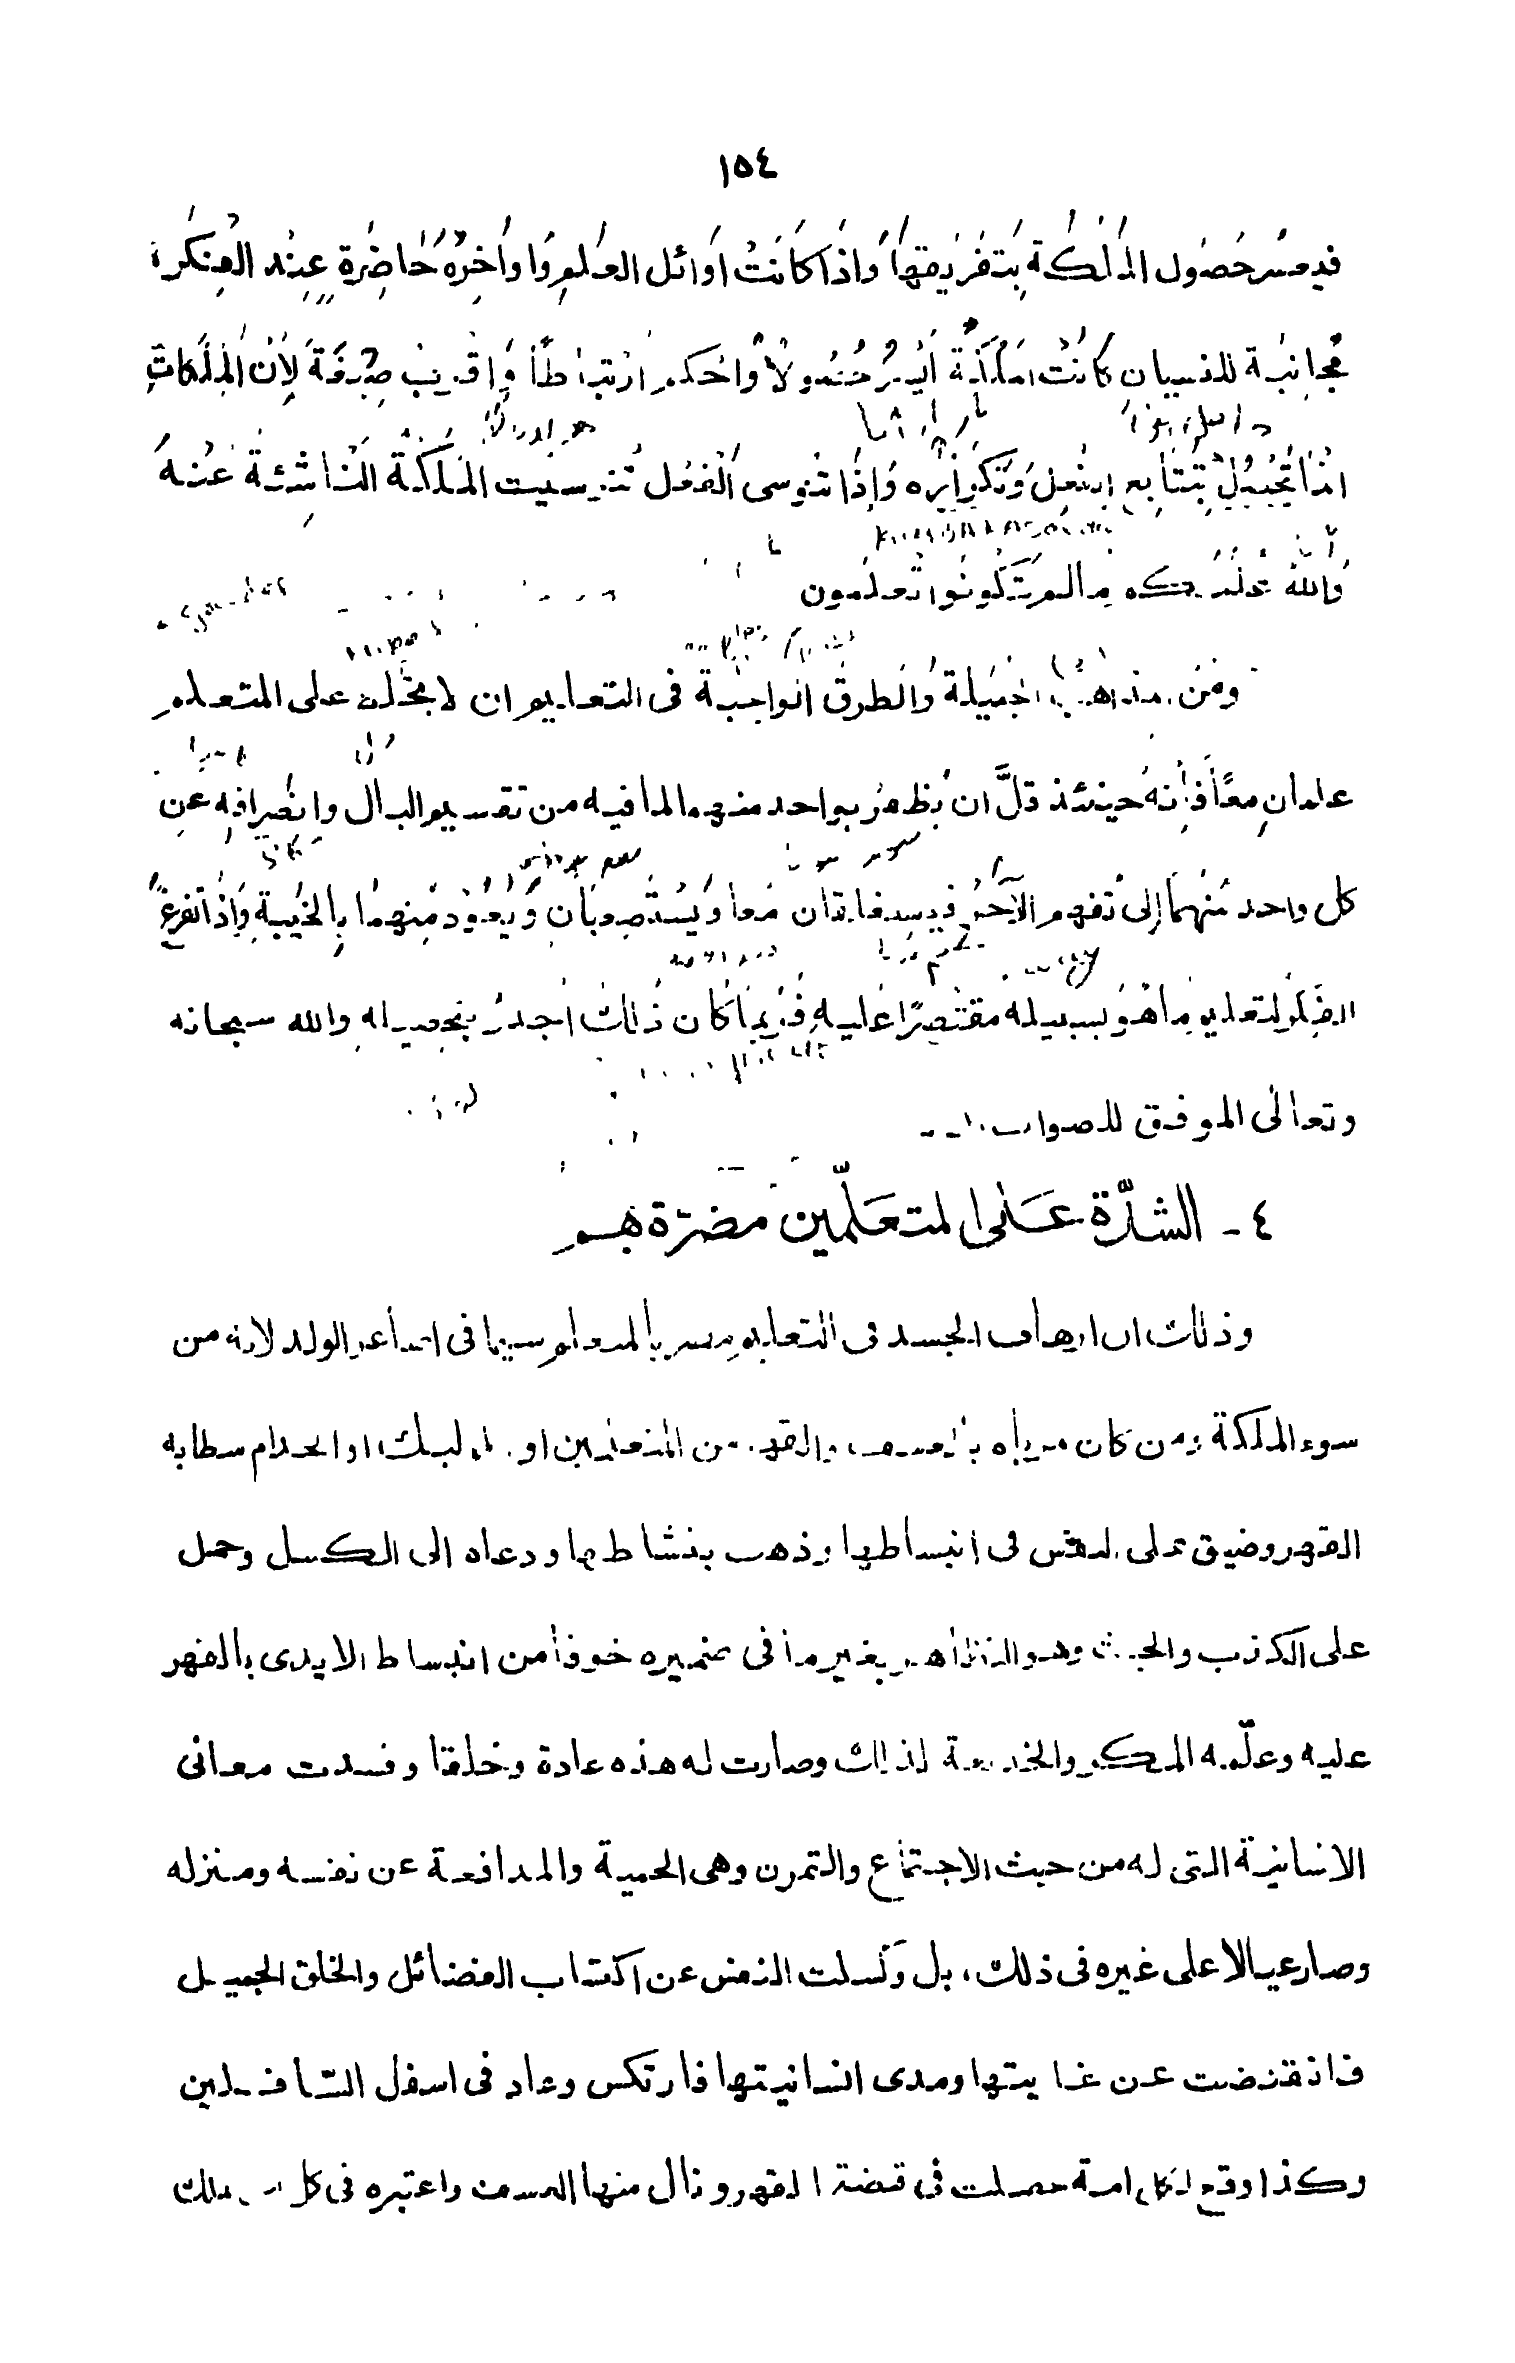 ١٥٤
فيعسر حصول الملكة بتفريقها وإذا كانت أوائل العلم وأواخره حاضرة عند الفكرة
مجانبة للنسيان كانت الملكة أيسر حصولاً وأحكم ارتباطاً وأقرب صبغة لأن الملكات
إنما تحصل بتتابع الفعل وتكراره وإذا تنوسي الفعل تنوسيت الملكة الناشئة عنه
والله علمكم ما لم تكونوا تعلمون
ومن المذاهب الجميلة والطرق الواجبة في التعليم ان لا يخلط على المتعلم
علمان معًا فإنه حينئذ قلَّ ان يظفر بواحد منهما لما فيه من تقسيم البال وانصرافه عن
كل واحد منهما إلى تفهم الآخر فيستغلقان معاً ويستصعبان ويعود منهما بالخيبة وإذا تفرغ
الفكر لتعليم ما هو بسبيله مقتصرًا عليه فربما كان ذلك أجدر بتحصيله والله سبحانه
وتعالى الموفق للصواب
٤ - الشدّة على المتعلّمين مضرّة بهم
وذلك ان ارهاف الجسد في التعليم مضر بالمتعلم سيما في اصاغر الولد لانه من
سوء الملكة ومن كان مرباه بالعسف والقهر من المتعلمين او المماليك او الخدام سطا به
القهر وضيق على النفس في انبساطها وذهب بنشاطها ودعاه الى الكسل وحمل
على الكذب والخبث وهو التظاهر بغير ما في ضميره خوفاً من انبساط الايدى بالقهر
عليه وعلّمه المكر والخديعة لذلك وصارت له هذه عادة وخلقا وفسدت معانى
الانسانية التى له من حيث الاجتماع والتمرن وهى الحمية والمدافعة عن نفسه ومنزله
وصار عيالا على غيره فى ذلك، بل وكسلت النفس عن اكتساب الفضائل والخلق الجميل
فانقبضت عن غايتها ومدى انسانيتها فارتكس وعاد فى اسفل السّافلين
وكذا وقع لكل امة حصلت في قبضة القهر ونال منها العسف واعتبره فى كل من يملك